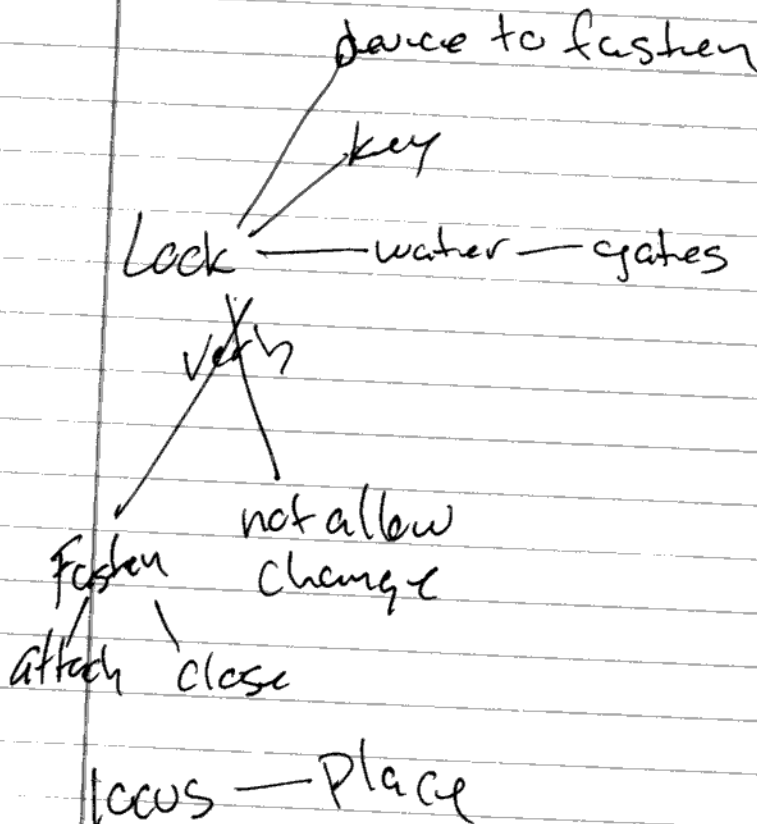 device to fasten
key
Lock — water — gates
verb
not allow
change
Fasten
attach close
locus — Place